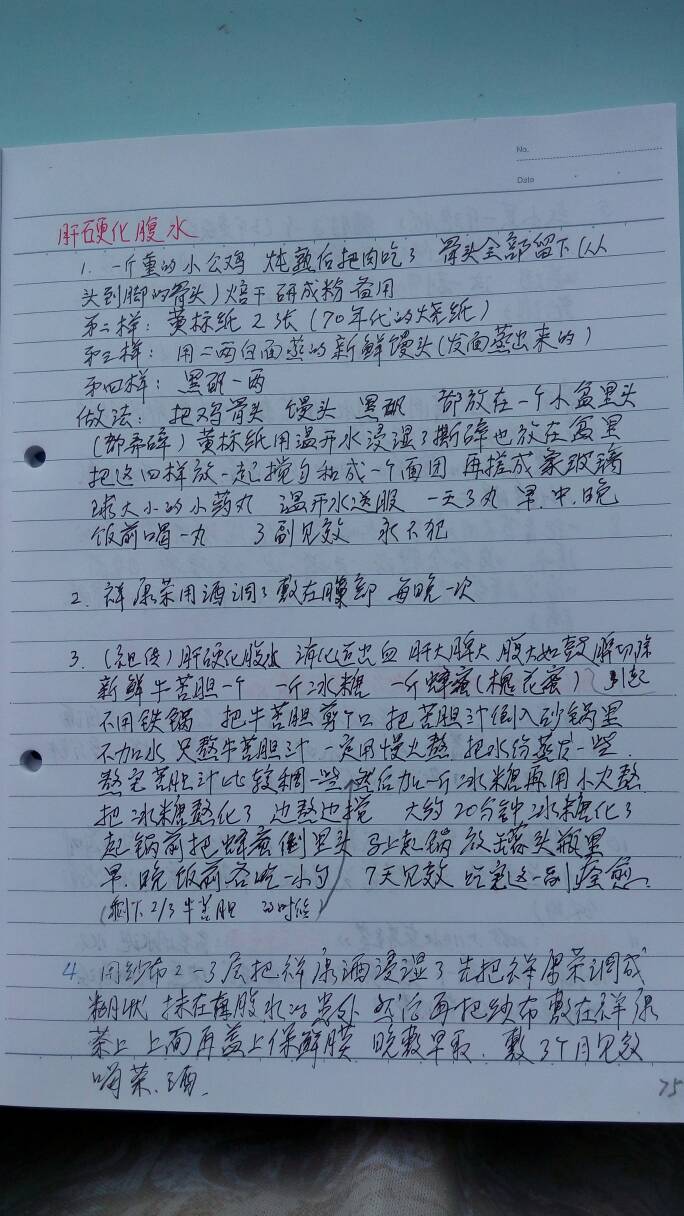 No.
Date
肝硬化腹水
1. 一斤重的小公鸡 炖熟后把肉吃了 骨头全部留下(从
头到脚的骨头)焙干研成粉备用
第二样：黄标纸2张(70年代的烧纸)
第三样：用二两白面蒸的新鲜馒头(发面蒸出来的)
第四样：黑矾一两
做法：把鸡骨头 馒头 黑矾 都放在一个小盆里头
(都弄碎)黄标纸用温开水浸湿了撕碎也放在盆里
把这四样放一起搅匀和成一个面团 再搓成象玻璃
球大小的小药丸 温开水送服 一天3丸 早.中.晚
饭前喝一丸 3副见效 永不犯
2. 祥康茶用酒调了敷在腹部 每晚一次
3. (祖传)肝硬化腹水 消化道出血 肝大脾大 腹大如鼓 脾切除
新鲜牛苦胆一个 一斤冰糖 一斤蜂蜜(槐花蜜) 引起
不用铁锅 把牛苦胆剪个口 把苦胆汁倒入砂锅里
不加水 只熬牛苦胆汁 一定用慢火熬 把水份蒸发一些
熬完苦胆汁比较稠一些 然后加一斤冰糖再用小火熬
把冰糖熬化了 边熬边搅 大约20分钟冰糖化了
起锅前把蜂蜜倒里头 马上起锅 放罐头瓶里
早.晚饭前各吃一小勺 7天见效 吃完这一副痊愈.
(剩下2/3牛苦胆 的时候)
4. 用纱布2-3层把祥康酒浸湿了 先把祥康茶调成
糊状 抹在有腹水的 然后再把纱布敷在祥康
茶上 上面再盖上保鲜膜 晚敷早取. 敷3个月见效
喝茶.酒.
75